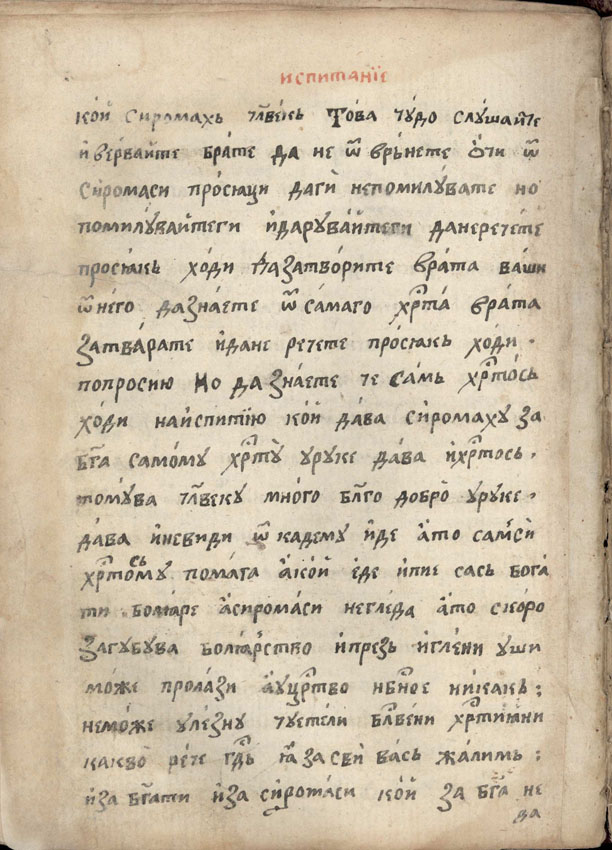 испитанїе
кой сиромахь члвекь Това чудо слушайте
и вервайте брате да не ѿ врьнете очи ѿ
сиромаси просюци даги непомилувате но
помилувайтеги идарувайтеги данеречете
просюкь ходи да затворите врата ваши
ѿ него да знаете ѿ самаго хрта врата
затварате идане речете просюкь ходи
попросию но да знаете че самь хртось
ходи наиспитїю кой дава сиромаху за
бга самому хрту уруке дава ихртось
томува члвеку много блго добро уруке
дава иневиди ѿ кадему иде ато самси
хртомусь помага акой еде ипие сась бога
ти болѧре асиромаси негледа ато скоро
загубува болѧрство ипрезь иглени уши
може пролази ауцртво нбное никакь ;
неможе улезну чуетели блвени хртиѧни
какво рече гдь ꙗ за сви вась жалимь ;
иза бгати иза сиромаси кой за бга не
да